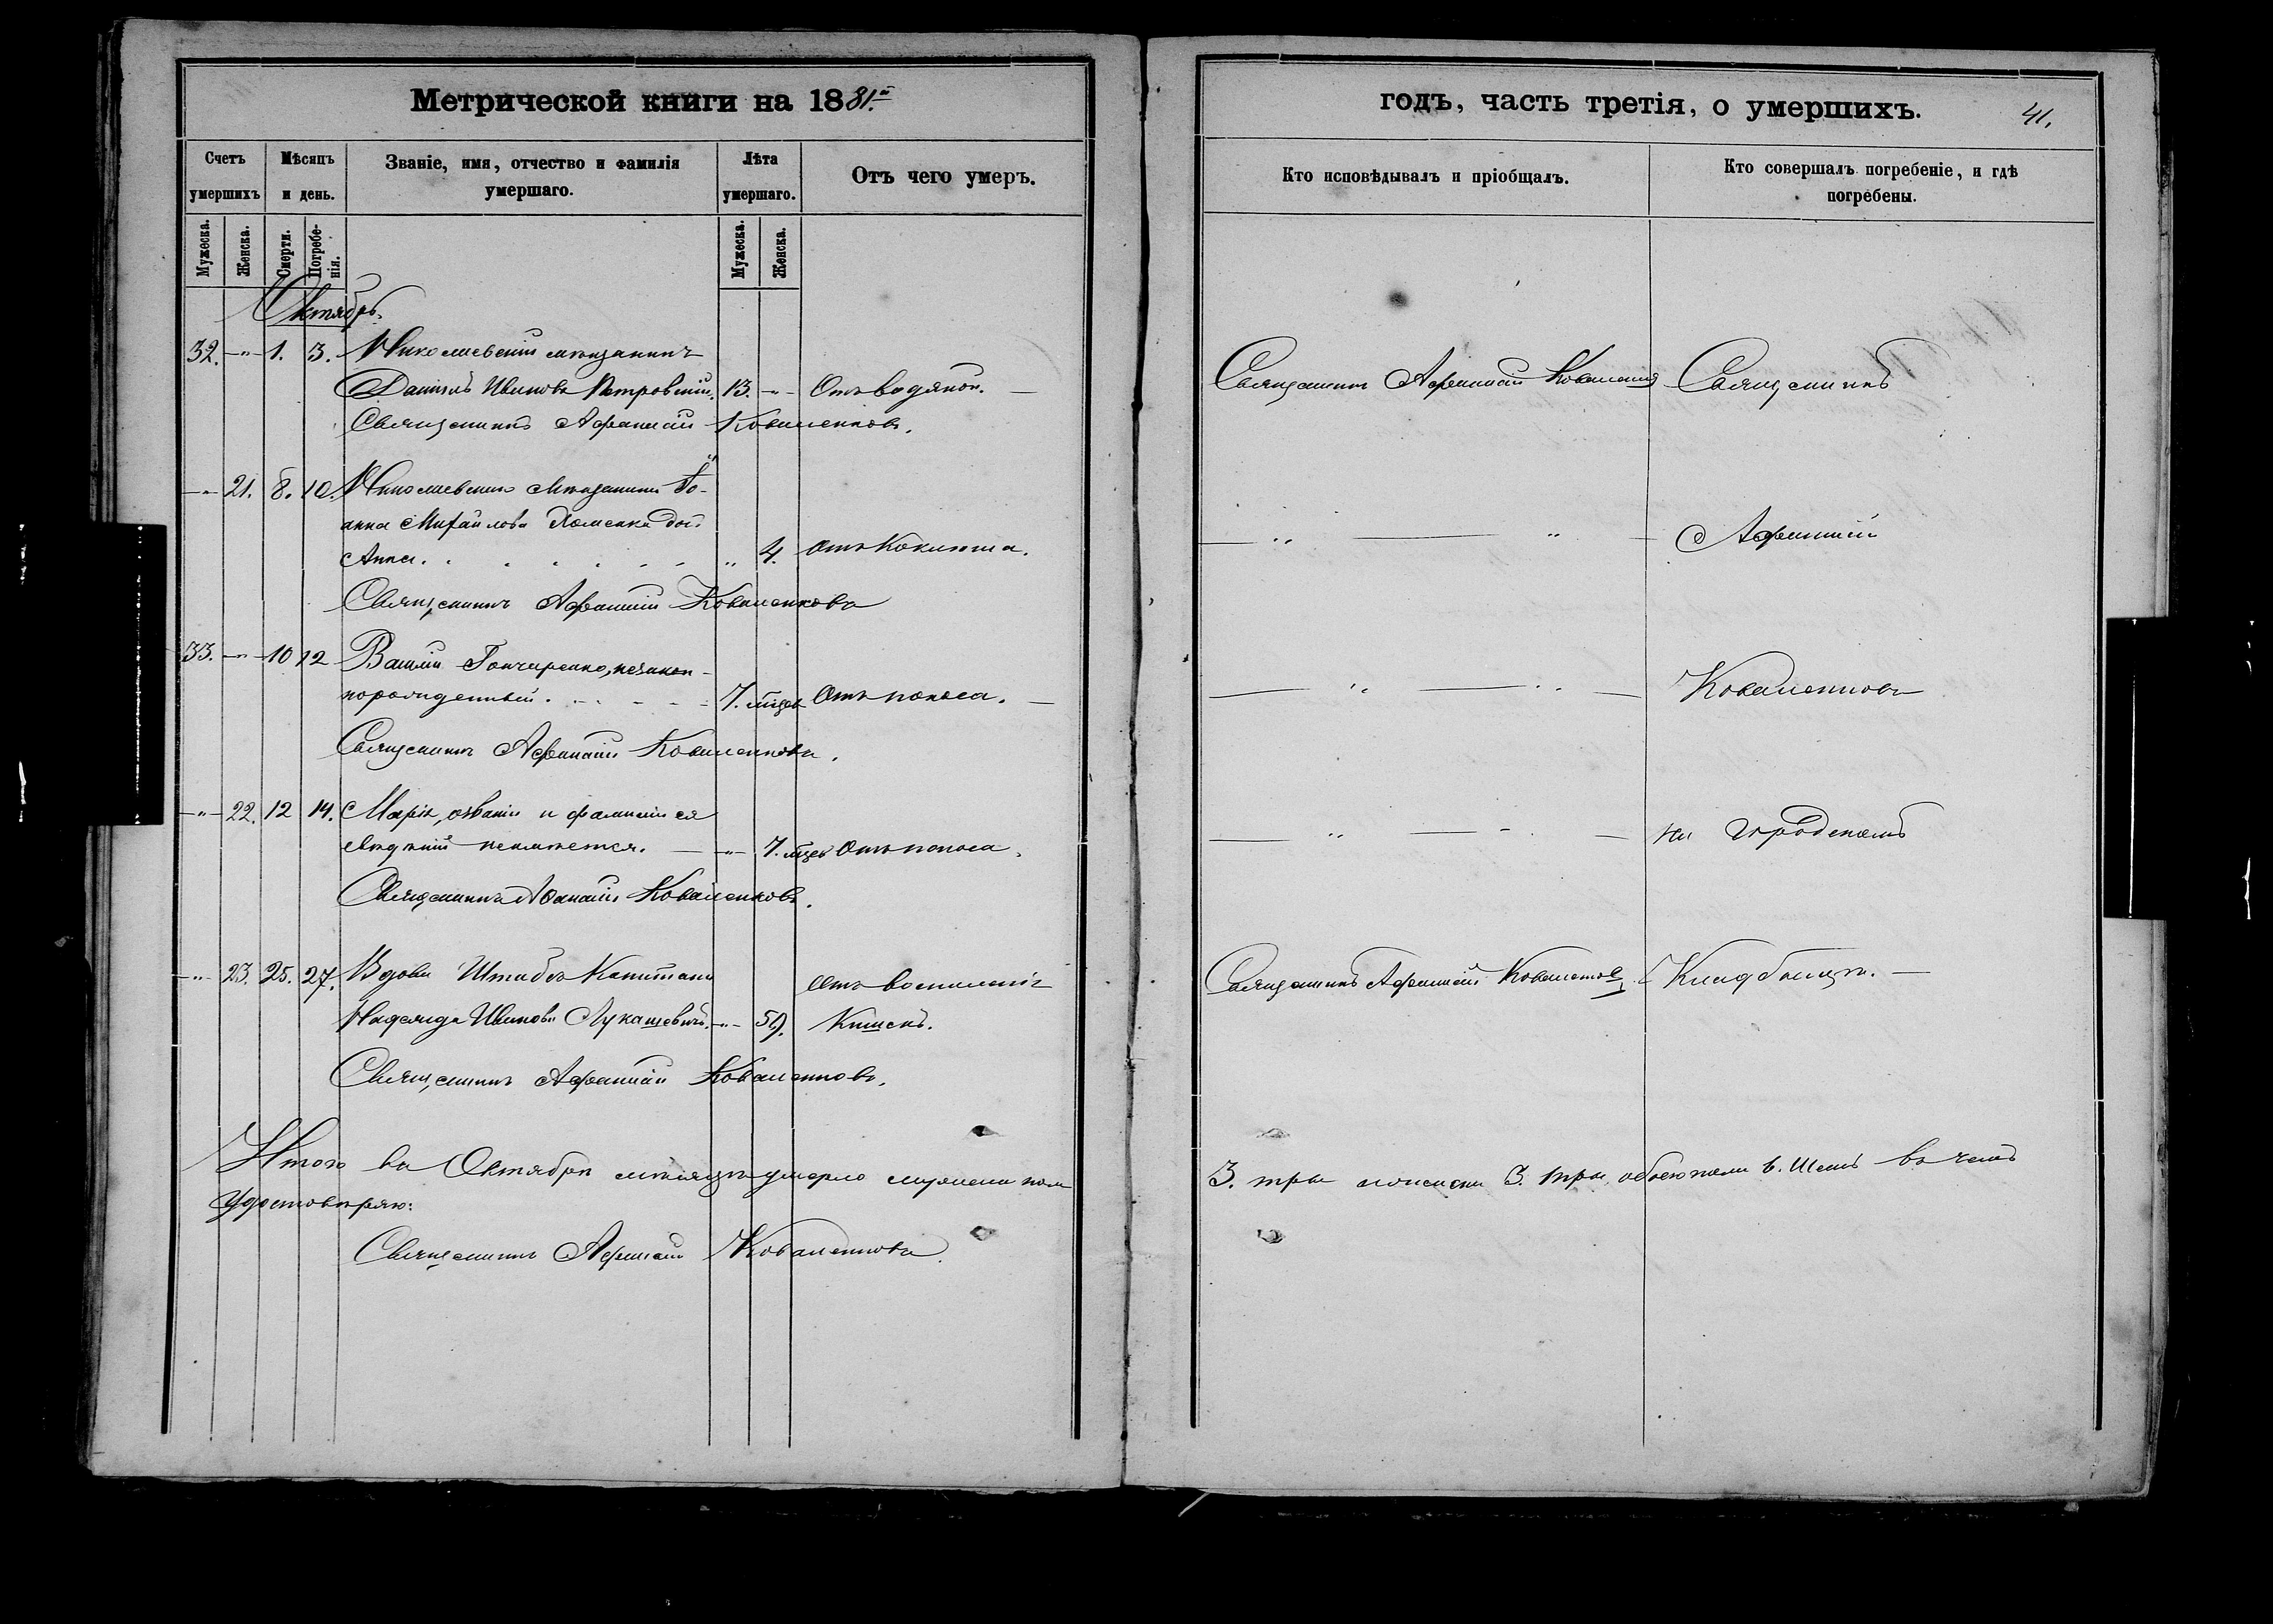 Метрической книги на 1881.й
Счетъ умершихъ
Мѣсяцъ и день.
Званіе, имя, отчество и фамилія умершаго.
Лѣта умершаго.
Отъ чего умеръ.
Мужеска.
Женска.
Смерти.
Погребенія.
Мужеска.
Женска.
Октябрь.
32. -"- 1. 3. Николаевскій мѣщанинъ
Даніилъ Ивановъ Петровскій. 13. -"- Отъ водяной.
Священникъ Афанасій Коваленковъ.
-"- 21. 8. 10. Николаевскаго мѣщанина Іо-
анна Михайлова Хоменка дочь
Анна. " 4. Отъ Коклюша.
Священникъ Афанасій Коваленковъ
33. -"- 10 12 Василій Гончаренко, незакон-
норожденный. 7. мѣсяц. Отъ поноса.
Священникъ Афанасій Коваленковъ.
-"- 22. 12 14. Марія, о званіи и фамиліи ея
свѣдѣній не имѣется. -"- 7. мѣсяц. Отъ поноса.
Священникъ Афанасій Коваленковъ.
-"- 23. 25. 27. Вдова Штабсъ Капитана
Надежда Иванова Лукашевичъ. -"- 59. Отъ воспаленія
Кишекъ.
Священникъ Афанасій Коваленковъ.
Итого въ Октябрѣ мѣсяцѣ умерло мужеска пола
Удостовѣряю:
Священникъ Афанасій Коваленковъ.
годъ, часть третія, о умершихъ.
41.
Кто исповѣдывалъ и пріобщалъ.
Кто совершалъ погребеніе, и гдѣ погребены.
Священникъ Афанасій Коваленковъ Священникъ
" " Афанасій
" " Коваленковъ
" " на Городскомъ
Священникъ Афанасій Коваленковъ. Кладбищѣ.
3. три женска 3. три, обоего пола 6. Шесть въ чемъ